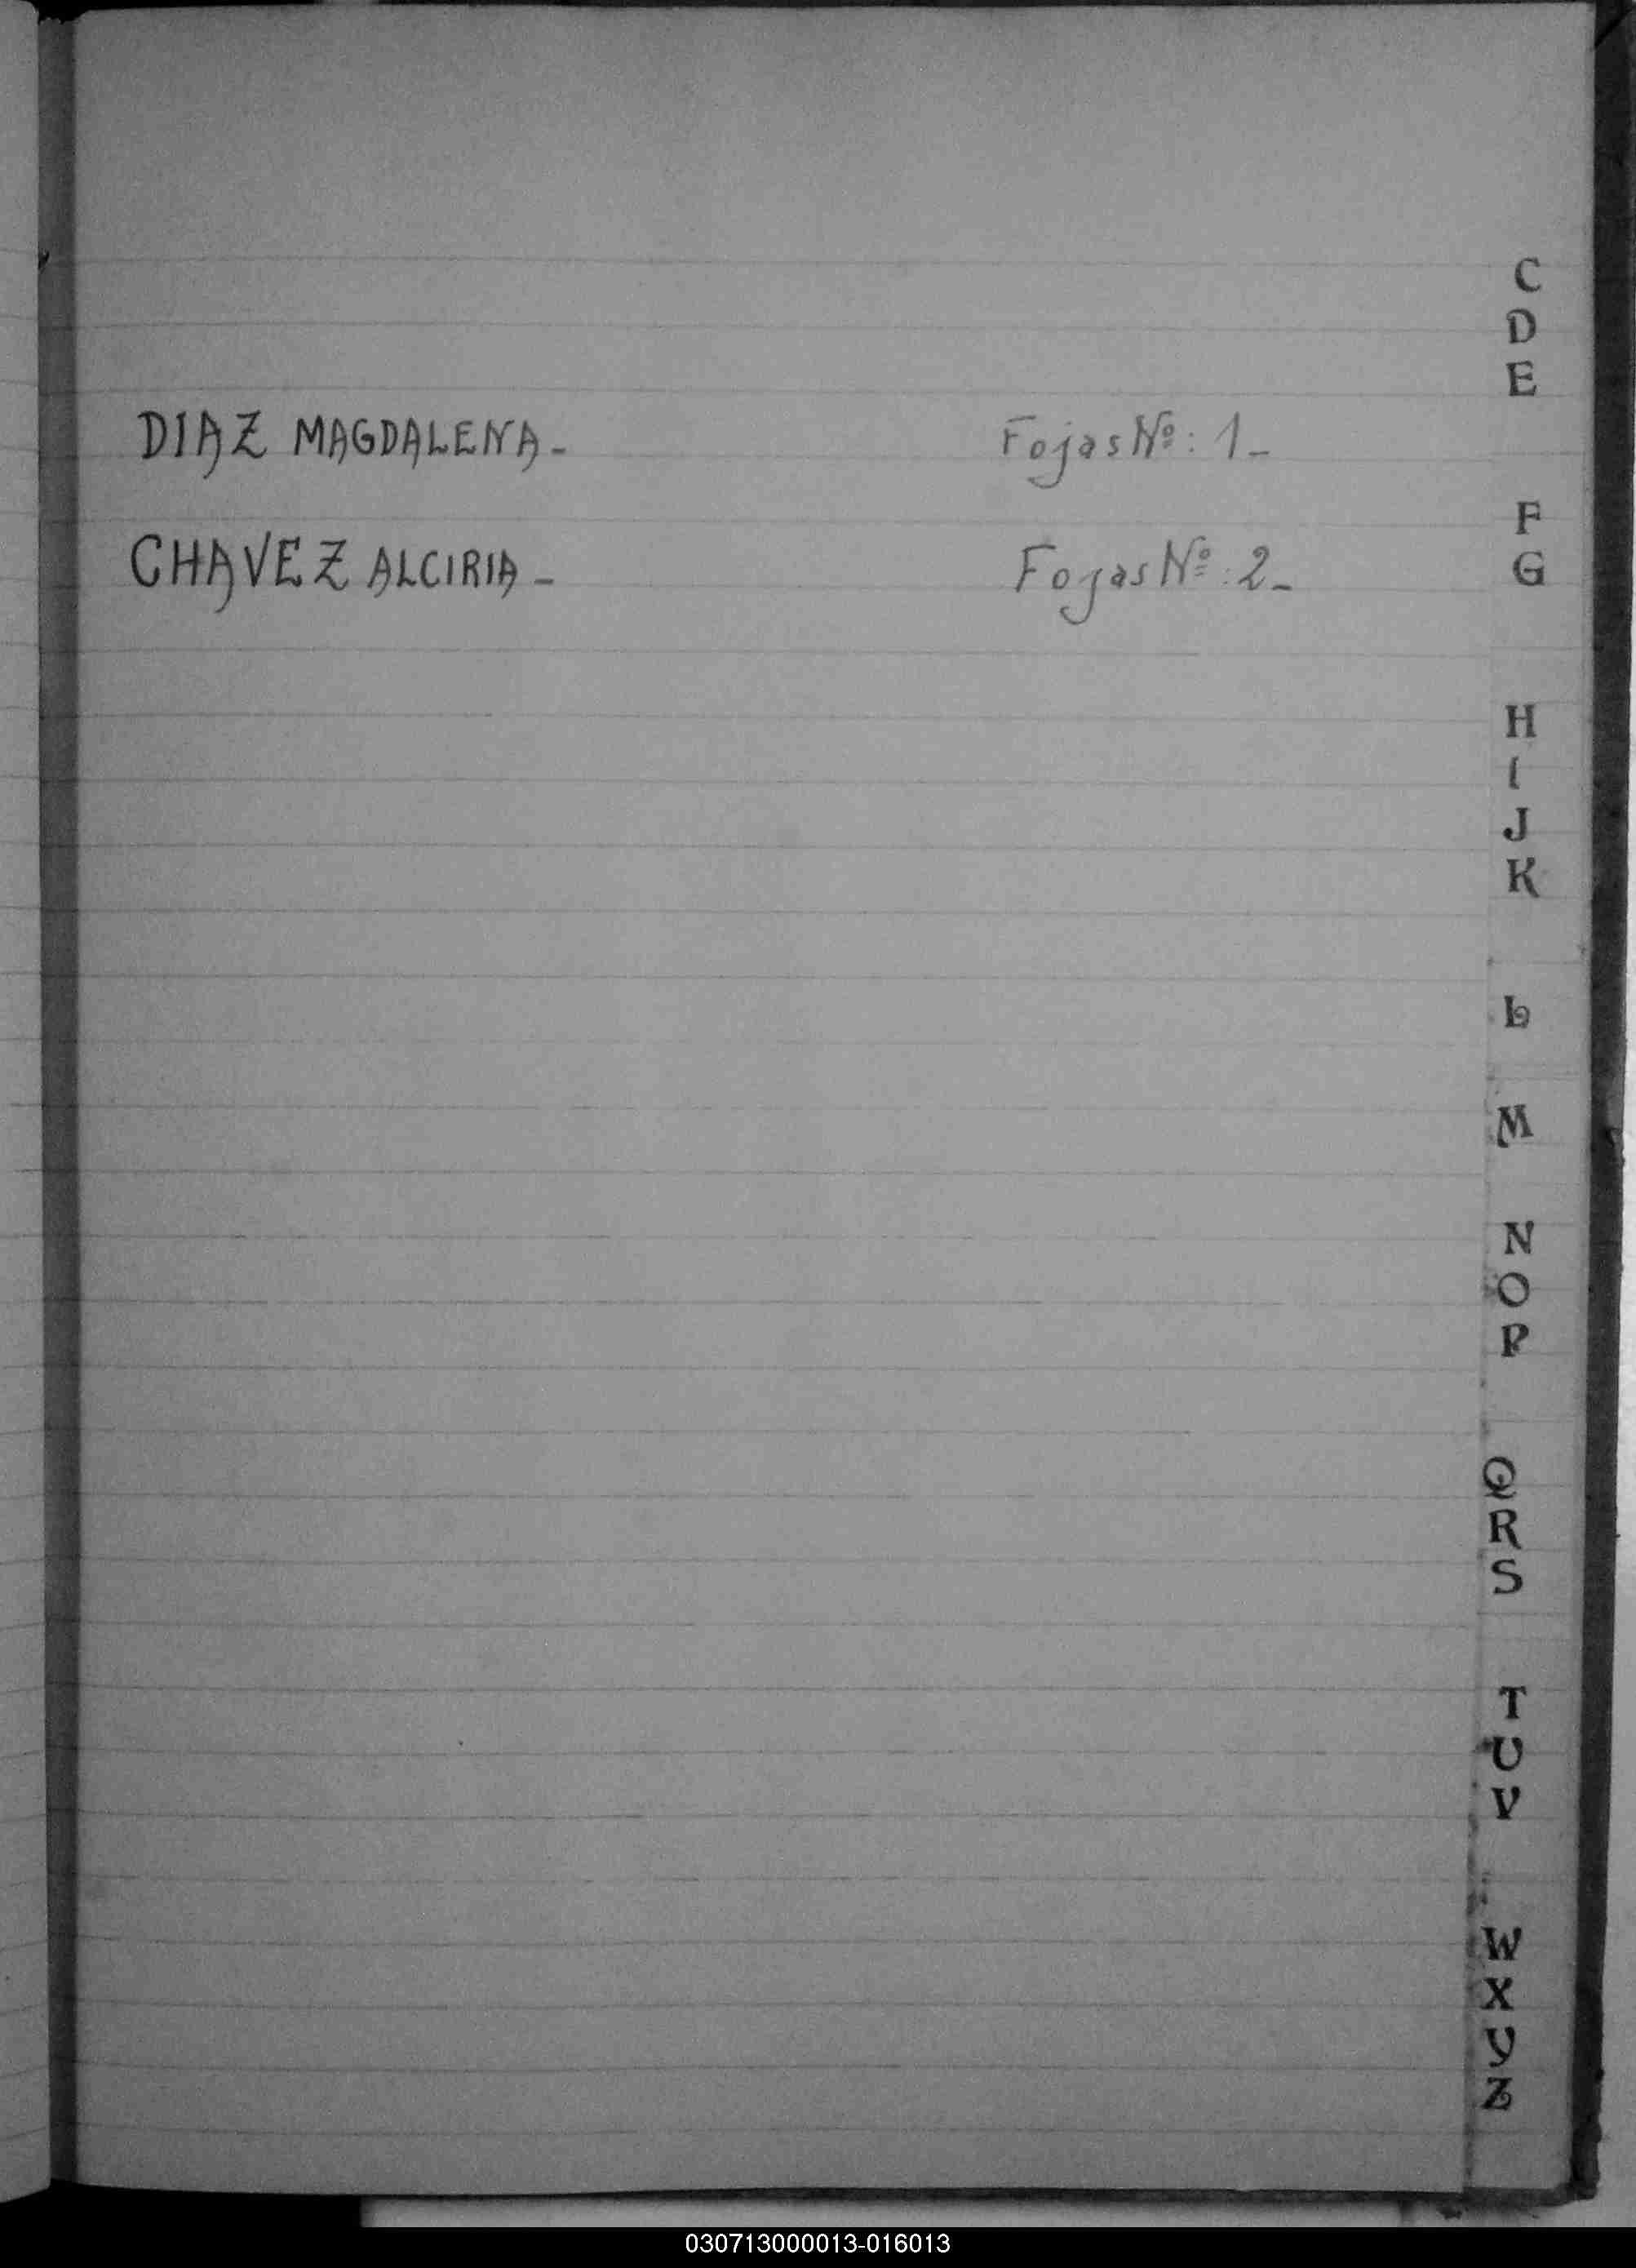 C
D
E
DIAZ MAGDALENA- Fojas Nº: 1-
F
CHAVEZ ALCIRIA- Fojas Nº: 2-
G
H
I
J
K
L
M
N
O
P
Q
R
S
T
U
V
W
X
Y
Z
030713000013-016013